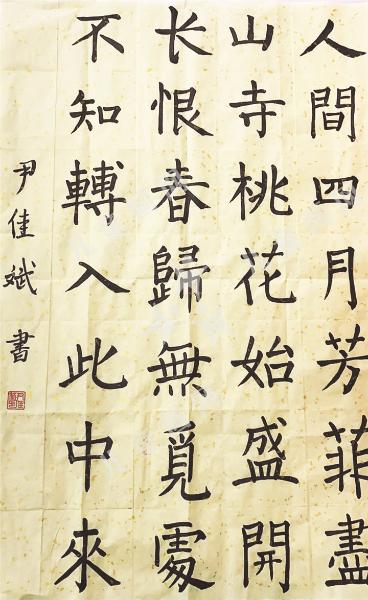 人間四月芳菲盡
山寺桃花始盛開
长恨春歸無覓處
不知轉入此中來
尹佳斌書